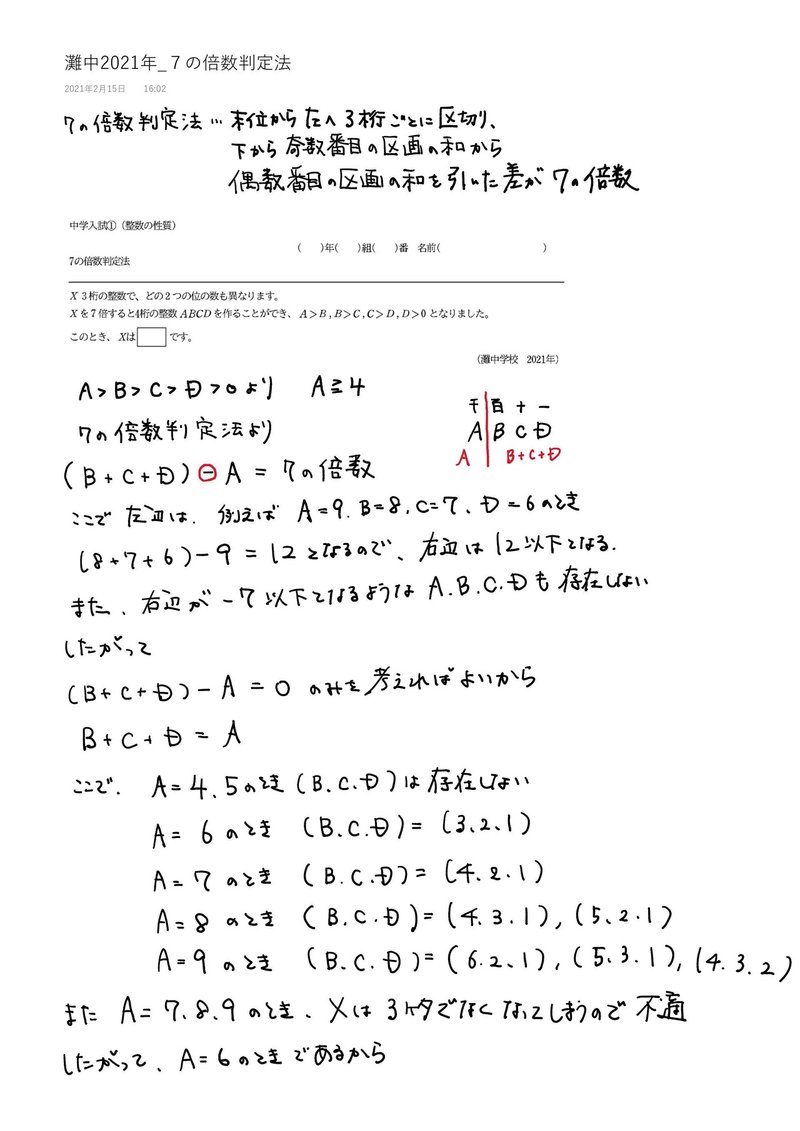 灘中2021年_７の倍数判定法
2021年2月15日 16:02
7の倍数判定法… 末位から左へ3桁ごとに区切り、
下から奇数番目の区画の和から
偶数番目の区画の和を引いた差が7の倍数
中学入試①（整数の性質）
(　　)年(　　)組(　　)番　名前(　　　　　　　　　　)
7の倍数判定法
X 3桁の整数で、どの２つの位の数も異なります。
Xを7倍すると4桁の整数ABCDを作ることができ、A>B, B>C, C>D, D>0となりました。
このとき、Xは□です。
（灘中学校　2021年）
A>B>C>D>0より　A≧4
千 百 十 一
7の倍数判定法より
A B C D
A B+C+D
(B+C+D)-A=7の倍数
ここで左辺は、例えばA=9、B=8、C=7、D=6のとき
(8+7+6)-9=12となるので、右辺は12以下となる.
また、右辺が-7以下となるようなA.B.C.Dも存在しない
したがって
(B+C+D)-A=0のみを考えればよいから
B+C+D=A
ここで、A=4、5のとき(B.C.D)は存在しない
A=6のとき (B.C.D)=(3.2.1)
A=7のとき (B.C.D)=(4.2.1)
A=8のとき (B.C.D)=(4.3.1),(5.2.1)
A=9のとき (B.C.D)=(6.2.1),(5.3.1),(4.3.2)
また A=7、8、9のとき、Xは3ケタでなくなってしまうので不適
したがって、A=6のときであるから